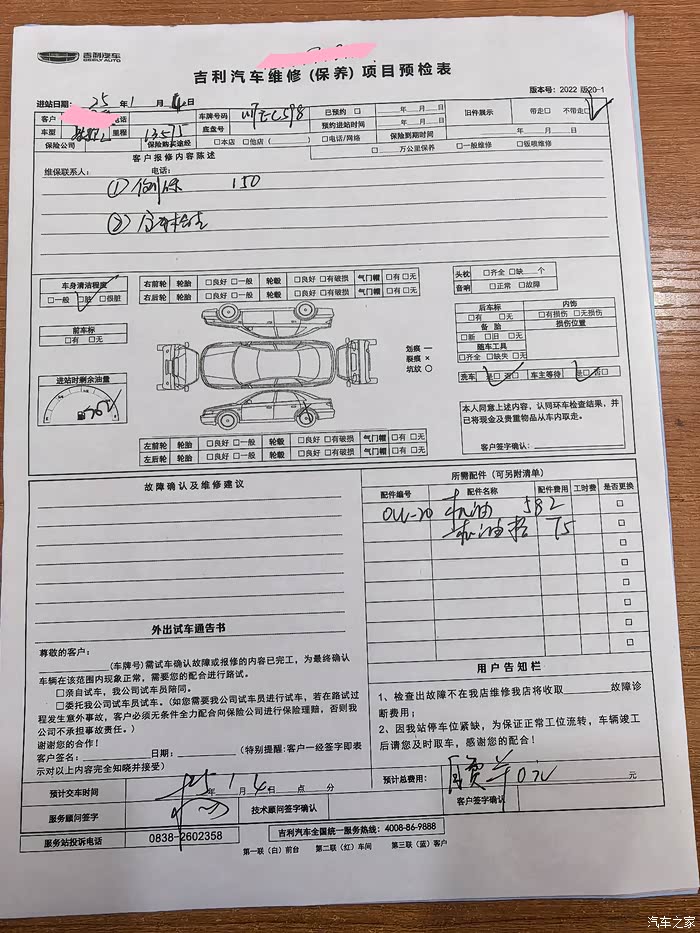 吉利汽车
GEELY AUTO
吉利汽车维修(保养)项目预检表
版本号:2022 版20-1
进站日期: 25 年 1 月 4 日
客户 电话 车牌号码 已预约 □ 年 月 日 旧件展示 带走□ 不带走□
车型 里程 13575 底盘号 预约进站时间 年 月 日
保险公司 保险购买途经 □本店 □他店( ) □电话/网络 保险到期时间 年 月 日
客户报修内容陈述 □ 万公里保养 □一般维修 □钣喷维修
维保联系人: 电话:
① 保 150
② 全车检查
车身清洁程度
□一般 □脏 □很脏
右前轮 轮胎 □良好 □一般 轮毂 □良好 □有破损 气门帽 □有 □无
右后轮 轮胎 □良好 □一般 轮毂 □良好 □有破损 气门帽 □有 □无
头枕 □齐全 □缺 个
音响 □正常 □故障
前车标
□有 □无
后车标 内饰
□有 □无 □有损伤 □无损伤
备胎 损伤位置
□新 □旧 □无
随车工具
□齐全 □缺失 □无
划痕 —
裂痕 ×
坑纹 ○
洗车 是□ 否□ 车主等待 是□ 否□
进站时剩余油量
本人同意上述内容,认同环车检查结果,并
已将现金及贵重物品从车内取走。
客户签字确认:
左前轮 轮胎 □良好 □一般 轮毂 □良好 □有破损 气门帽 □有 □无
左后轮 轮胎 □良好 □一般 轮毂 □良好 □有破损 气门帽 □有 □无
故障确认及维修建议
所需配件(可另附清单)
配件编号 配件名称 配件费用 工时费 是否更换
0W-20 机油 582 □
机油格 75 □
□
□
□
□
□
□
外出试车通告书
尊敬的客户:
(车牌号)需试车确认故障或报修的内容已完工,为最终确认
车辆在该范围内现象正常,需要您的配合进行路试。
□亲自试车,我公司试车员陪同。
□委托我公司试车员试车。(如您需要我公司试车员进行试车,若在路试过
程发生意外事故,客户必须无条件全力配合向保险公司进行保险理赔,否则我
公司不承担事故责任。)
谢谢您的合作!
客户签名: 日期: (特别提醒:客户一经签字即表
示对以上内容完全知晓并接受)
用户告知栏
1、检查出故障不在我店维修我店将收取 故障诊
断费用;
2、因我站停车位紧缺,为保证正常工位流转,车辆竣工
后请您及时取车,感谢您的配合!
预计交车时间 25 年 1 月 4 日 点 分
预计总费用: 0元 元
服务顾问签字 技术顾问签字确认 客户签字确认
服务站投诉电话 0838-2602358 吉利汽车全国统一服务热线:4008-86-9888
第一联(白)前台 第二联(红)车间 第三联(蓝)客户
汽车之家